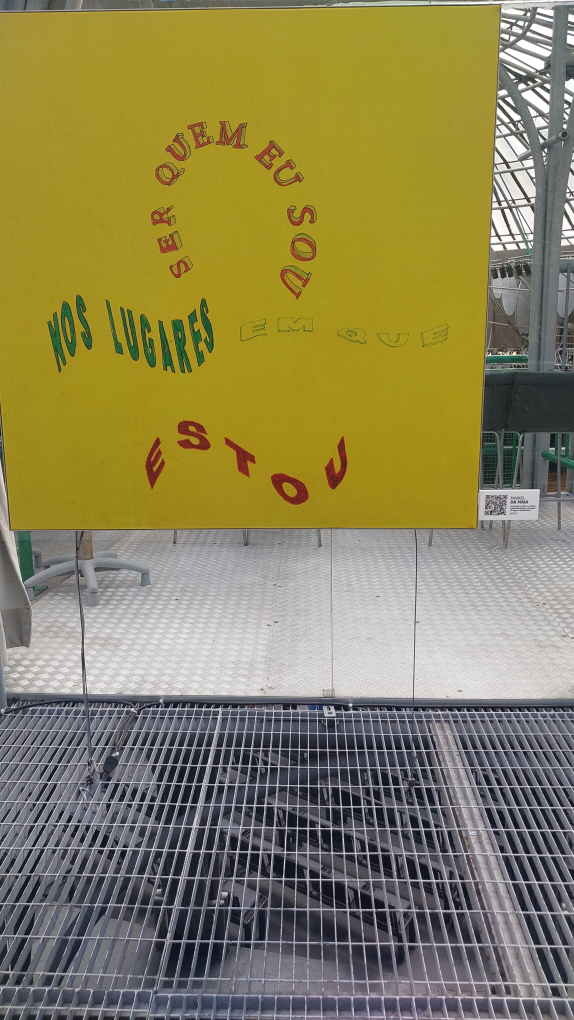 SER QUEM EU SOU
NOS LUGARES EM QUE
ESTOU
MAIKEL
DA MAIA